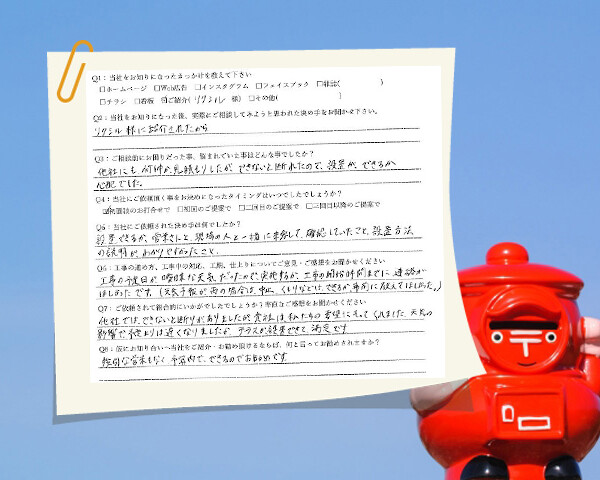 Q1：当社をお知りになったきっかけを教えて下さい
□ホームページ　□Web広告　□インスタグラム　□フェイスブック　□雑誌(　　　)
□チラシ　□看板　☑ご紹介( リクシル 様)　□その他(　　　)
Q2：当社をお知りになった後、実際にご相談してみようと思われた決め手をお聞かせ下さい。
リクシル様に紹介されたから
Q3：ご相談前にお困りだった事、悩まれていた事はどんな事でしたか？
他社にも何件か見積もりしたが、できないと断られたので、設置ができるか
心配でした。
Q4：当社にご依頼頂く事をお決めになったタイミングはいつでしたでしょうか？
☑初面談のお打合せで　□初回のご提案で　□二回目のご提案で　□三回目以降のご提案で
Q5：当社にご依頼された決め手は何でしたか？
設置できるか、営業さんと、現場の人と一緒に来館して、確認していたこと、設置方法
の説明が、わかりやすかったこと。
Q6：工事の進め方、工事中の対応、工期、仕上りについてご意見・ご感想をお聞かせください
工事の予定日が曖昧な天気だったので、実施するか、工事の開始時間までに連絡が
ほしかったです。(天気予報が雨の場合は、中止、くもりなどは、できるか事前に伝えてほしかった。)
Q7：ご依頼されて総合的にいかがでしたでしょうか？率直なご感想をお聞かせください
他社では、できないと断りがありましたが、貴社は私たちの希望にそってくれました、天気の
影響で仕上りは遅くなりましたが、テラスが設置できて、満足です
Q8：仮にお知り合いへ当社をご紹介・お勧め頂けるならば、何と言ってお勧めされますか？
強引な営業もなく、予算内で、できるのでお勧めです。